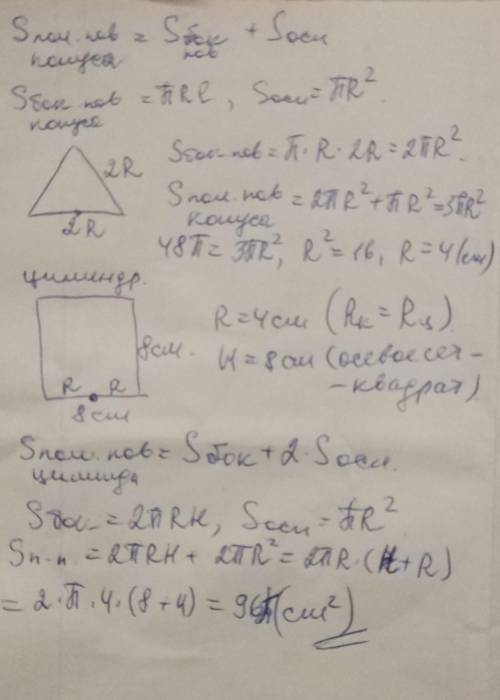 Sпол.пов = Sбок + Sосн
конуса пов
Sбок.пов = πRl, Sосн = πR²
конуса
Sбок.пов = π·R·2R = 2πR².
2R
2R
Sпол.пов = 2πR² + πR² = 3πR²
конуса
48π = 3πR², R² = 16, R = 4(см)
цилиндр.
R = 4см (Rк = Rц).
8см.
H = 8см (осевое сеч-
-квадрат).
R R
8см
Sпол.пов = Sбок + 2·Sосн.
цилиндра
Sбок = 2πRH, Sосн = πR²
Sп.п = 2πRH + 2πR² = 2πR·(H+R)
= 2·π·4·(8+4) = 96π(см²)